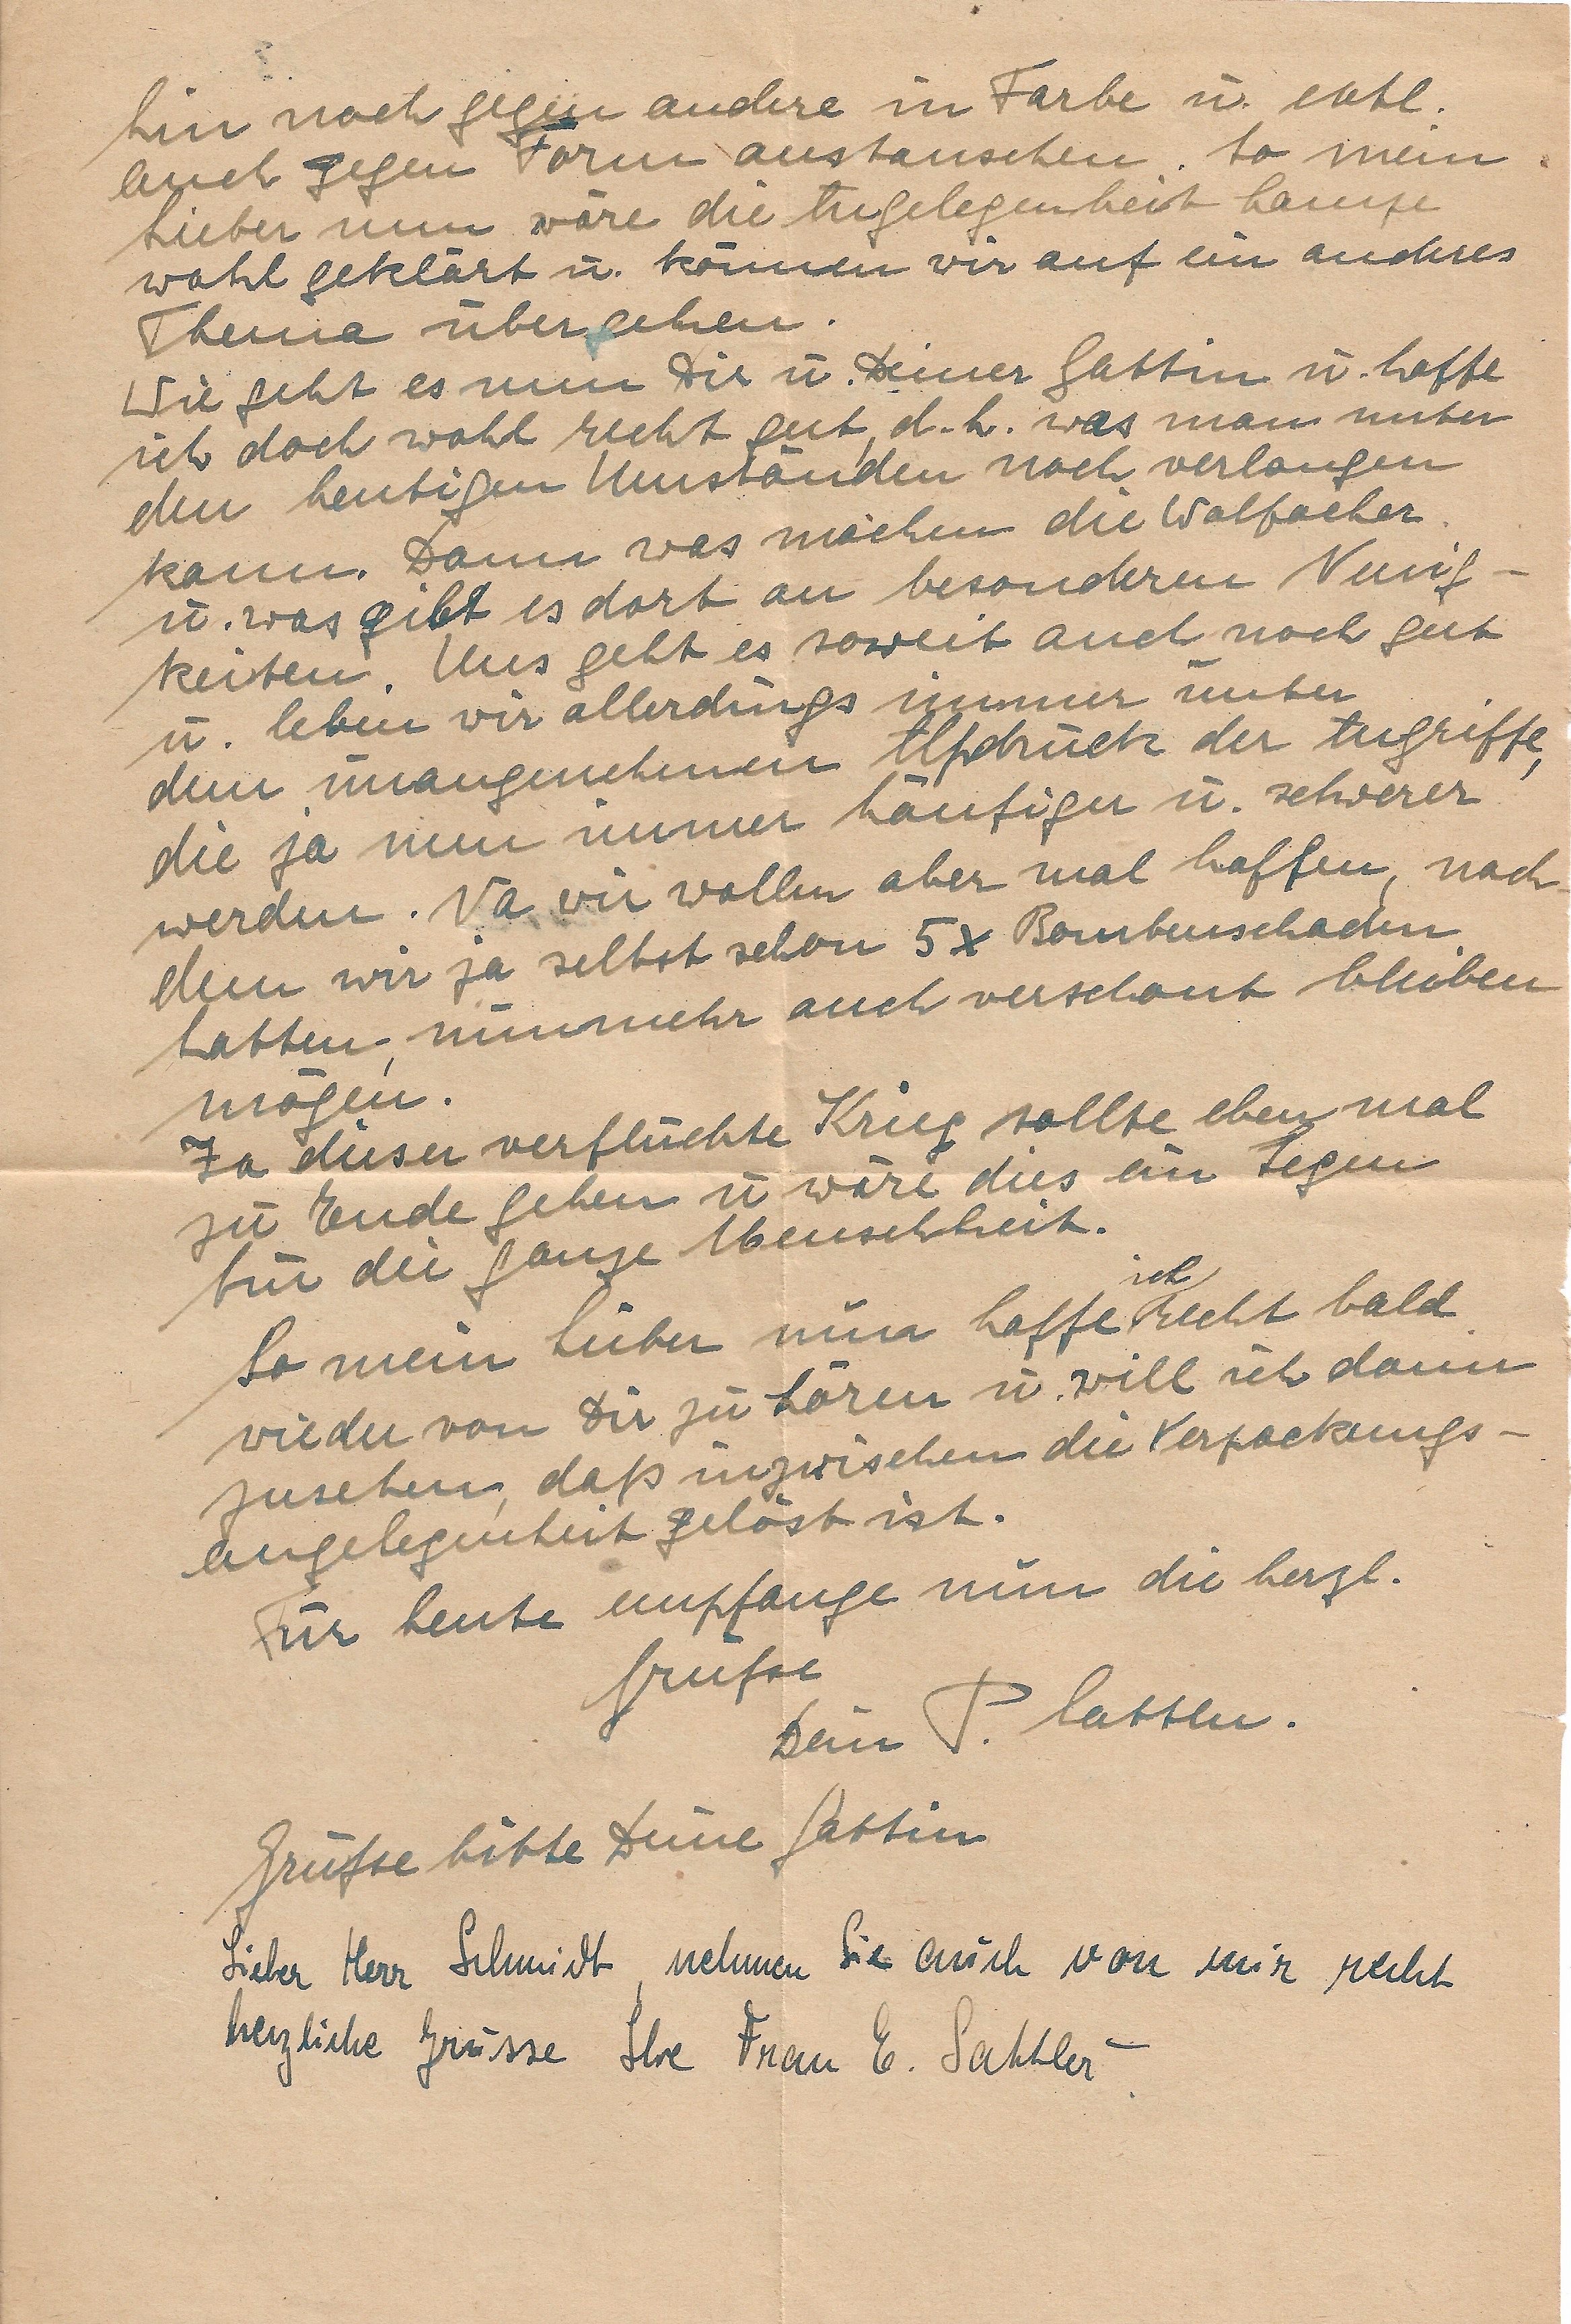 hin noch gegen andere in Farbe u. evtl.
auch gegen Form austauschen. So mein
Lieber nun wäre die Angelegenheit Lampe
wohl geklärt u. können wir auf ein anderes
Thema übergehen.
Wie geht es nun Dir u. Deiner Gattin u. hoffe
ich doch wohl recht gut, d.h. was man unter
den heutigen Umständen noch verlangen
kann. Dann was machen die Wolfacher
u. was gibt es dort an besonderen Neuig-
keiten. Uns geht es soweit auch noch gut
u. leben wir allerdings immer unter
dem unangenehmen Alpdruck der Angriffe,
die ja nun immer häufiger u. schwerer
werden. Na wir wollen aber mal hoffen, nach-
dem wir ja selbst schon 5x Bombenschaden
hatten, nunmehr auch verschont bleiben
mögen.
Ja dieser verfluchte Krieg sollte eben mal
zu Ende gehen u wäre dies ein Segen
für die ganze Menschheit.
So mein Lieber nun hoffe ich recht bald
wieder von Dir zu hören u. will ich dann
zusehen, daß inzwischen die Verpackungs-
angelegenheit gelöst ist.
Für heute empfange nun die herzl.
Grüße
Dein P. Sattler.
Grüße bitte Deine Gattin
Lieber Herr Schmidt, nehmen Sie auch von mir recht
herzliche Grüsse Ihre Frau E. Sattler